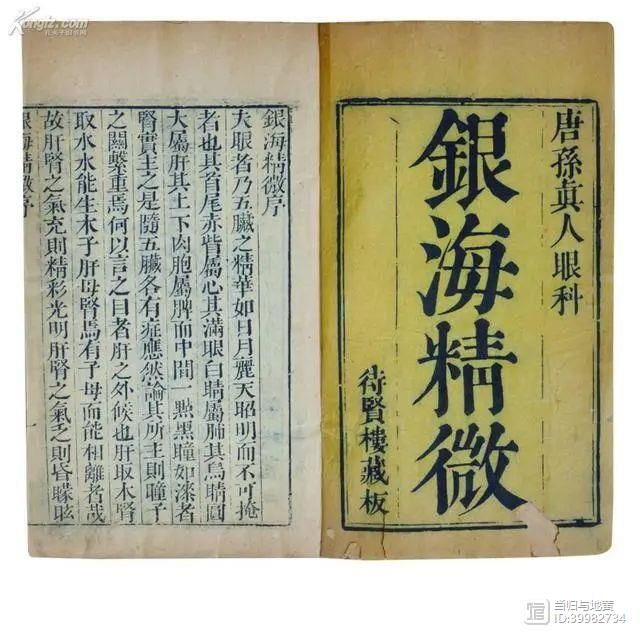 唐孫真人眼科
銀海精微
待賢樓藏板
銀海精微序
夫眼者乃五臟之精華如日月麗天昭明而不可掩
者也其首尾赤眥屬心其滿眼白睛屬肺其烏睛圓
大屬肝其上下肉胞屬脾而中間一點黑瞳如漆者
腎實主之是隨五臟各有症應然論其所主則瞳子
之關繫重焉何以言之目者肝之外候也肝取木腎
取水水能生木子肝母腎焉有子母而能相離者哉
故肝腎之氣充則精彩光明肝腎之氣乏則昏矇眩
銀海精微序
Kongfz.com
孔夫子旧书网
当归与地黄
ID:39982734